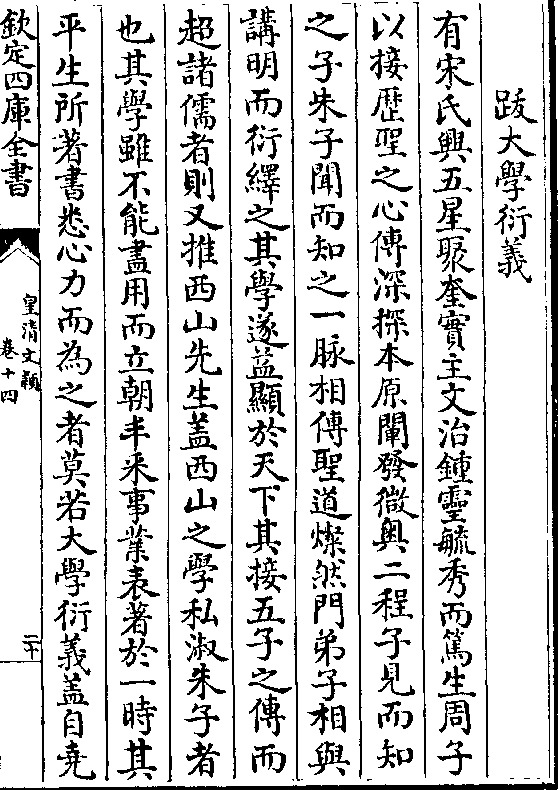 跋大學衍義
有宋氏興五星聚奎實主文治鍾靈毓秀而篤生周子
以接歷聖之心傳深探本原闡發微奧二程子見而知
之子朱子聞而知之一脉相傳聖道燦然門弟子相與
講明而衍繹之其學遂益顯於天下其接五子之傳而
超諸儒者則又推西山先生蓋西山之學私淑朱子者
也其學雖不能盡用而立朝丰采事業表著於一時其
平生所著書悉心力而為之者莫若大學衍義蓋自堯
欽定四庫全書
皇清文穎
卷十四
二十